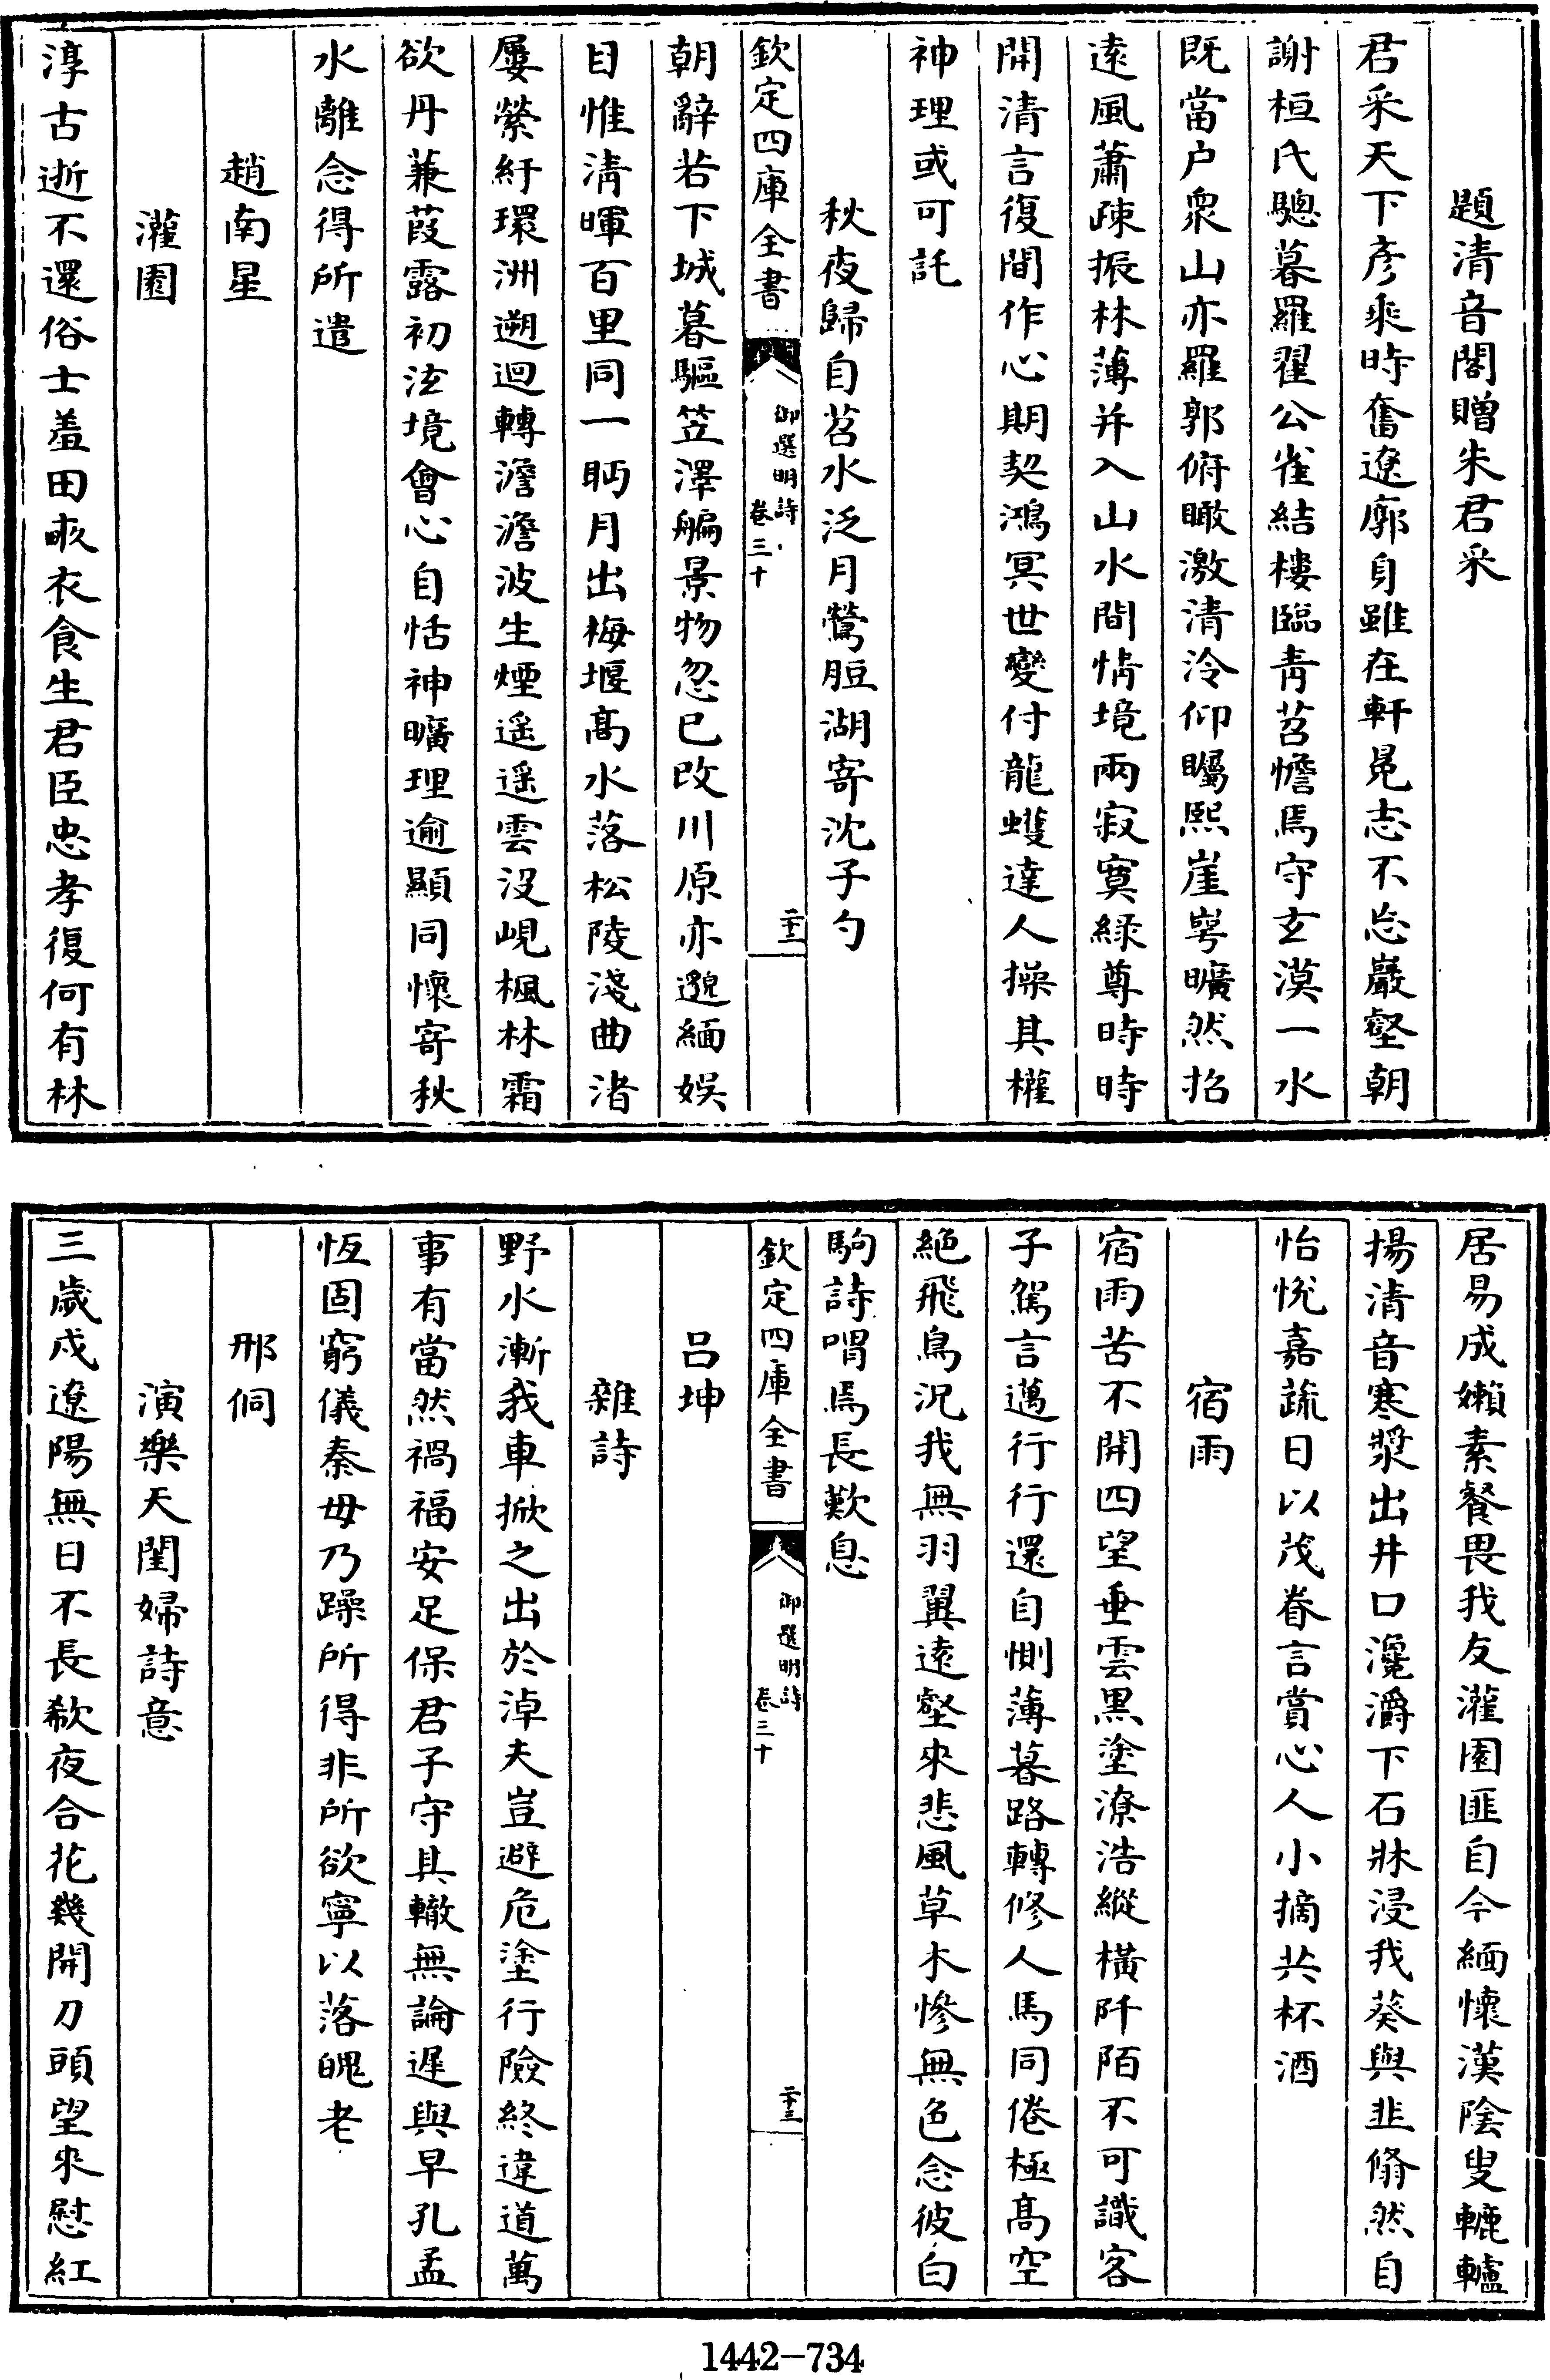 題清音閣贈朱君采
君采天下彥乘時奮遼廓身雖在軒冕志不忘巖壑朝
謝桓氏驄暮羅翟公雀結樓臨青苕幨焉守玄漠一水
既當户衆山亦羅郭俯瞰激清泠仰矚熙崖崿曠然招
逺風蕭疎振林薄并入山水間情境兩寂寞緑尊時時
開清言復間作心期契鴻冥世變付龍蠖達人操其權
神理或可託
秋夜歸自苕水泛月鶯脰湖寄沈子勺
欽定四庫全書
御選明詩
卷三十
二十二
朝辭若下城暮驅笠澤艑景物忽已改川原亦邈緬娛
目惟清暉百里同一眄月出梅堰髙水落松陵淺曲渚
屢縈紆環洲遡迴轉澹澹波生煙遥遥雲没峴楓林霜
欲丹蒹葭露初泫境會心自恬神曠理逾顯同懷寄秋
水離念得所遣
趙南星
灌園
淳古逝不還俗士羞田畝衣食生君臣忠孝復何有林
居易成嬾素餐畏我友灌園匪自今緬懷漢陰叟轆轤
揚清音寒漿出井口瀺灂下石牀浸我葵與韭翛然自
怡恱嘉蔬日以茂眷言賞心人小摘共杯酒
宿雨
宿雨苦不開四望垂雲黒塗潦浩縱橫阡陌不可識客
子駕言邁行行還自惻薄暮路轉修人馬同倦極髙空
絶飛鳥况我無羽翼逺壑來悲風草木慘無色念彼白
駒詩喟焉長歎息
欽定四庫全書
御選明詩
卷三十
二十三
吕坤
雜詩
野水漸我車掀之出於淖夫豈避危塗行險終違道萬
事有當然禍福安足保君子守其轍無論遲與早孔孟
恆固窮儀秦毋乃躁所得非所欲寧以落魄老
邢侗
演樂天閨婦詩意
三歲戍遼陽無日不長欷夜合花幾開刀頭望來慰紅
1442-734